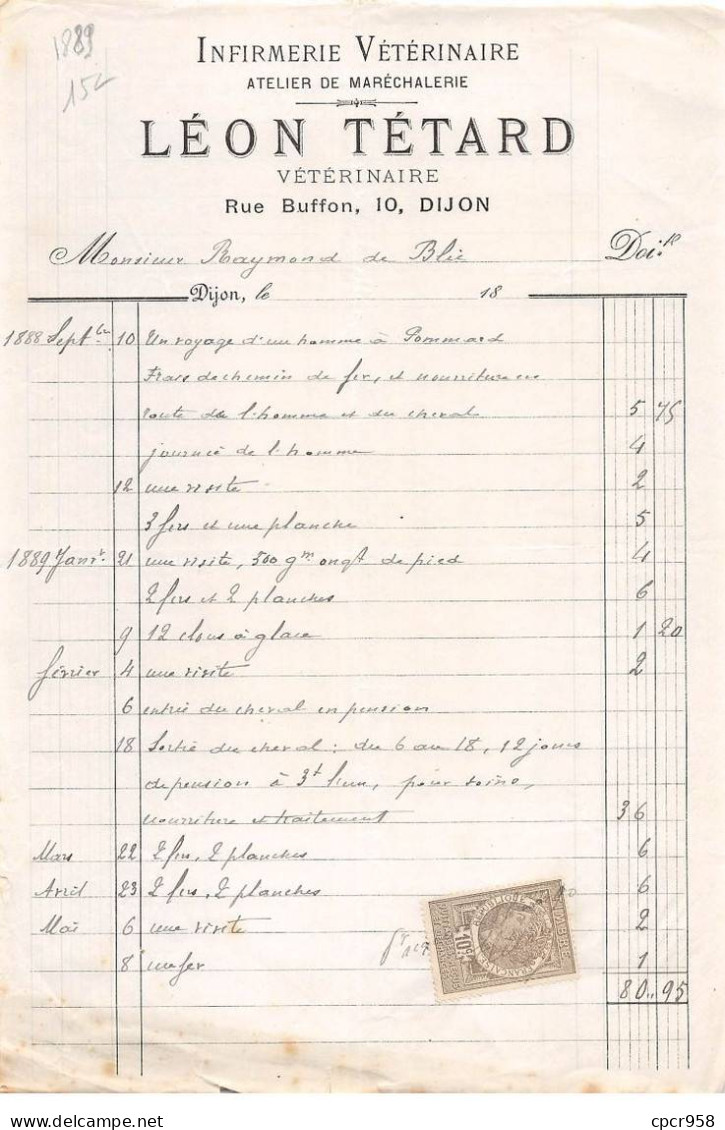 1889
15
INFIRMERIE VÉTÉRINAIRE
ATELIER DE MARÉCHALERIE
LÉON TÉTARD
VÉTÉRINAIRE
Rue Buffon, 10, DIJON
Monsieur Raymond de Blic Doit
Dijon, le 18
1888 Septbre 10 Un voyage d'un homme à Pommard
Frais de chemin de fer, et nourriture en
route de l'homme et du cheval 5 75
journée de l'homme 4
12 une visite 2
3 fers et une planche 5
1889 Janvr 21 une visite, 500 gm ongt de pied 4
2 fers et 2 planches 6
9 12 clous à glace 1 20
février 4 une visite 2
6 entrée du cheval en pension
18 Sortie du cheval : du 6 au 18, 12 jours
de pension à 3f l'un, pour soins,
nourriture et traitement 36
Mars 22 2 fers, 2 planches 6
Avril 23 2 fers, 2 planches 6
Mai 6 une visite 2
8 un fer 1
80 " 95
TIMBRE
RÉPUBLIQUE FRANÇAISE
10c
cpcr958